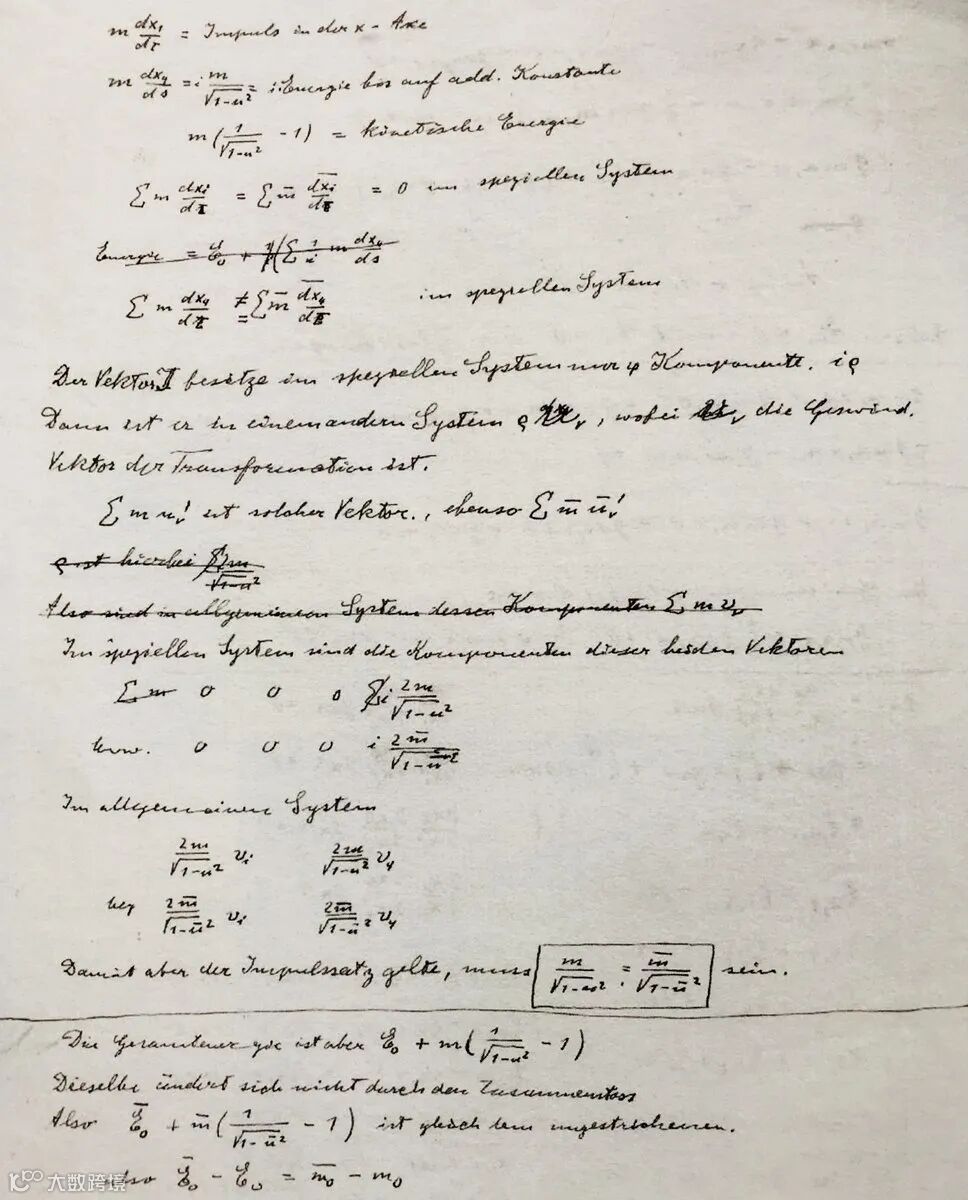 m dx₁/dτ = Impuls in der x - Axe
m dx₄/ds = i m/√(1-u²) = i Energie bis auf add. Konstante
m (1/√(1-u²) - 1) = kinetische Energie
∑ m dxᵢ/dτ = ∑ m̄ d̄xᵢ/dτ = 0 im speziellen System
Energie = E₀ + (∑ 1/i m dx₄/ds
∑ m dx₄/dτ ≠= ∑ m̄ d̄x₄/dτ im speziellen System
Der Vektor II besitze im speziellen System nur 4 Komponente. iρ
Dann ist er in einem andern System ρ, wobei die Geswind.
Vektor der Transformation ist.
∑ m uᵥ' ist solcher Vektor., ebenso ∑ m̄ ūᵥ'
ρ ist hierbei ∑ 2m/√(1-u²)
Also sind in allgemeinen System dessen Komponenten ∑ m vᵥ
Im speziellen System sind die Komponenten dieser beiden Vektoren
∑ m 0 0 0 ∑ i 2m/√(1-u²)
bzw. 0 0 0 i 2m̄/√(1-ū²)
Im allgemeinen System
2m/√(1-u²) vᵢ 2m/√(1-u²) v₄
bez 2m̄/√(1-ū²) vᵢ 2m̄/√(1-ū²) v₄
Damit aber der Impulssatz gelte, muss m/√(1-u²) = m̄/√(1-ū²) sein.
Die Gesamtenergie ist aber E₀ + m (1/√(1-u²) - 1)
Dieselbe ändert sich nicht durch den Zusammenstoss
Also Ē₀ + m̄ (1/√(1-ū²) - 1) ist gleich dem ungestrichenen.
Also Ē₀ - E₀ = m̄₀ - m₀
大数跨境